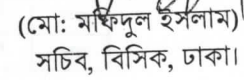 (মো: মফিদুল ইসলাম)
সচিব, বিসিক, ঢাকা।